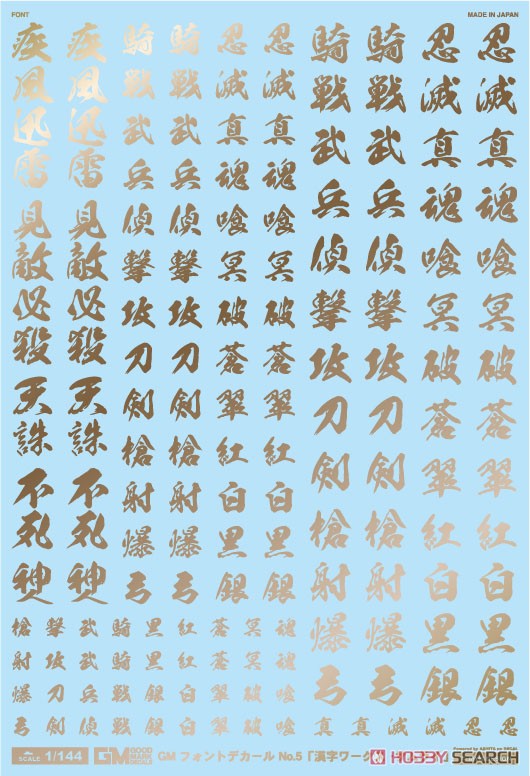 FONT
MADE IN JAPAN
疾風迅雷
疾風迅雷
見敵必殺
見敵必殺
天誅
天誅
不死
不死
騎 騎 忍 忍
戦 戦 滅 滅
武 武 真 真
兵 兵 魂 魂
偵 偵 喰 喰
撃 撃 冥 冥
攻 攻 破 破
刀 刀 蒼 蒼
剣 剣 翠 翠
槍 槍 紅 紅
射 射 白 白
爆 爆 黒 黒
弓 弓 銀 銀
騎 騎 忍 忍
戦 戦 滅 滅
武 武 真 真
兵 兵 魂 魂
偵 偵 喰 喰
撃 撃 冥 冥
攻 攻 破 破
刀 刀 蒼 蒼
剣 剣 翠 翠
槍 槍 紅 紅
射 射 白 白
爆 爆 黒 黒
弓 弓 銀 銀
槍 撃 武 騎 黒 紅 蒼 冥 魂
射 攻 武 騎 黒 紅 蒼 冥 魂
爆 刀 兵 戦 銀 白 翠 破 喰
弓 剣 偵 戦 銀 白 翠 破 喰 真 真 滅 滅 忍 忍
SCALE 1/144 GM GOOD MARK DECALS GM フォントデカール No.5 「漢字ワーク
HOBBY SEARCH